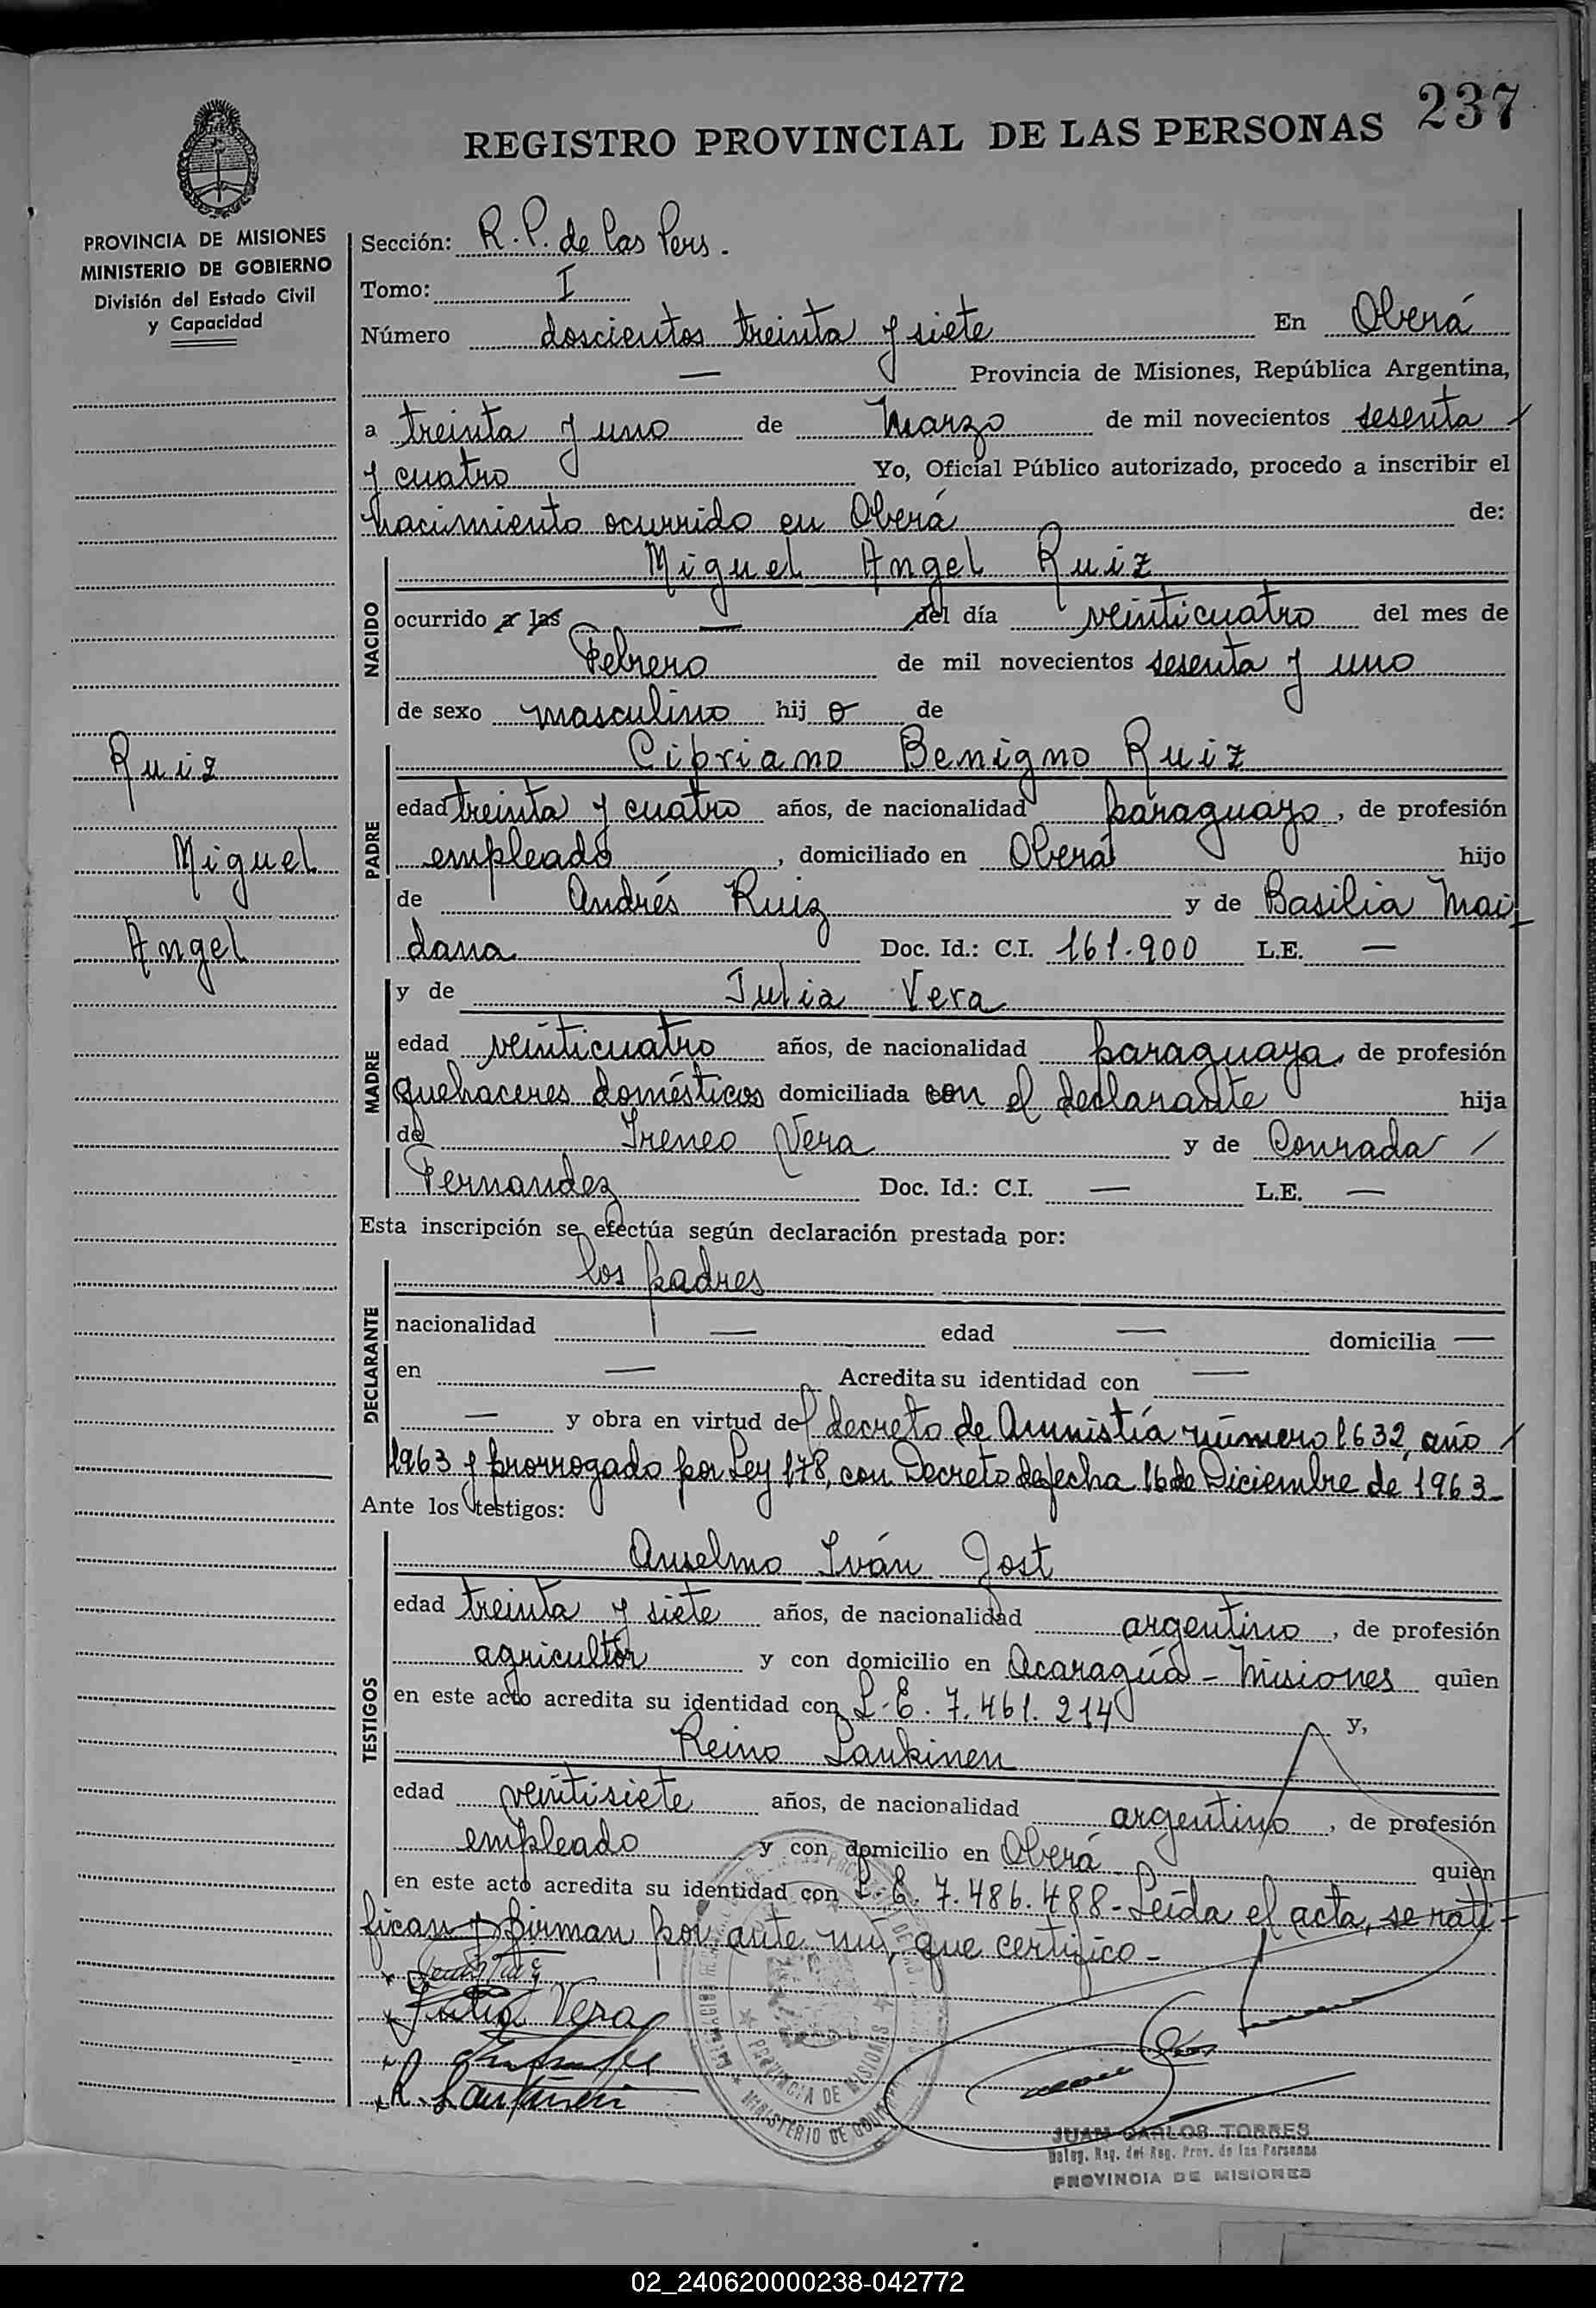 237
REGISTRO PROVINCIAL DE LAS PERSONAS
PROVINCIA DE MISIONES
MINISTERIO DE GOBIERNO
División del Estado Civil
y Capacidad
Ruiz
Miguel
Angel
Sección: R. P. de las Pers.
Tomo: I
Número doscientos treinta y siete En Oberá
— Provincia de Misiones, República Argentina,
a treinta y uno de Marzo de mil novecientos sesenta
y cuatro Yo, Oficial Público autorizado, procedo a inscribir el
nacimiento ocurrido en Oberá de:
NACIDO
Miguel Angel Ruiz
ocurrido a las — del día veinticuatro del mes de
Febrero de mil novecientos sesenta y uno
de sexo masculino hij o de
PADRE
Cipriano Benigno Ruiz
edad treinta y cuatro años, de nacionalidad paraguayo, de profesión
empleado, domiciliado en Oberá hijo
de Andrés Ruiz y de Basilia Mai
dana Doc. Id.: C.I. 161.900 L.E. —
MADRE
y de Julia Vera
edad veinticuatro años, de nacionalidad paraguaya, de profesión
quehaceres domésticos domiciliada con el declarante hija
de Ireneo Vera y de Conrada
Fernandez Doc. Id.: C.I. — L.E. —
Esta inscripción se efectúa según declaración prestada por:
DECLARANTE
los padres
nacionalidad — edad — domicilia —
en — Acredita su identidad con —
— y obra en virtud del decreto de Amnistía número 1632, año
1963 y prorrogado por Ley 178, con Decreto de fecha 16 de Diciembre de 1963-
Ante los testigos:
TESTIGOS
Anselmo Iván Jost
edad treinta y siete años, de nacionalidad argentino, de profesión
agricultor y con domicilio en Acaraguá - Misiones quien
en este acto acredita su identidad con L.E. 7.461.214 y,
Reino Laukinen
edad veintisiete años, de nacionalidad argentino, de profesión
empleado y con domicilio en Oberá quien
en este acto acredita su identidad con L.E. 7.486.488- Leída el acta, se rati-
fican y firman por ante mí, que certifico-
Julia Vera
R. Laukinen
PROVINCIA DE MISIONES
MINISTERIO DE GOBIERNO
JUAN CARLOS TORRES
Deleg. Reg. del Reg. Prov. de las Personas
PROVINCIA DE MISIONES
02_240620000238-042772